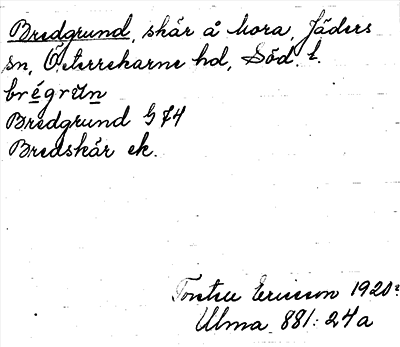 Bredgrund, skär å Mora, Jäders
sn, Österrekarne hd, Söd. l.
brégrŭn
Bredgrund G 74
Bredskär ek.
Torsten Ericsson 1920?
Ulma 881: 24a